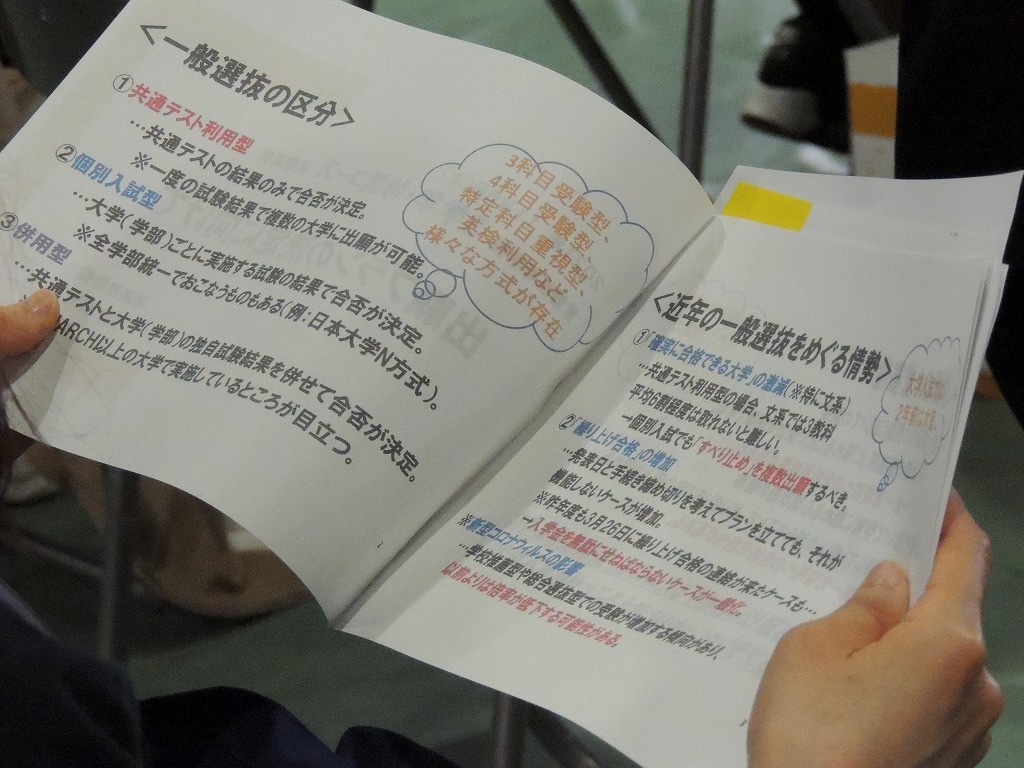 <一般選抜の区分>
①共通テスト利用型
…共通テストの結果のみで合否が決定。
※一度の試験結果で複数の大学に出願が可能。
②個別入試型
…大学(学部)ごとに実施する試験の結果で合否が決定。
※全学部統一でおこなうものもある(例:日本大学N方式)。
③併用型
…共通テストと大学(学部)の独自試験結果を併せて合否が決定。
ARCH以上の大学で実施しているところが目立つ。
3科目受験型、
4科目受験型、
特定科目重視型、
英検利用など
様々な方式が存在
2
<近年の一般選抜をめぐる情勢>
①「確実に合格できる大学」の激減(※特に文系)
…共通テスト利用型の場合、文系では3教科
平均6割程度は取れないと厳しい。
→個別入試でも「すべり止め」を複数出願するべき。
②「繰り上げ合格」の増加
…発表日と手続き締め切りを考えてプランを立てても、それが
機能しないケースが増加。
※昨年度も3月26日に繰り上げ合格の連絡が来たケースも…
→入学金を無駄にせねばならないケースが一般化。
※新型コロナウィルスの影響
…学校推薦型や総合選抜型での受験が増加する傾向があり、
以前よりは倍率が低下する可能性がある。
3